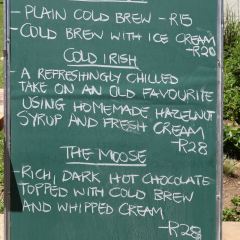 - PLAIN COLD BREW - R15
- COLD BREW WITH ICE CREAM
-R20
COLD IRISH
A REFRESHINGLY CHILLED
TAKE ON AN OLD FAVOURITE
USING HOMEMADE HAZELNUT
SYRUP AND FRESH CREAM
-R28
THE MOOSE
-RICH, DARK HOT CHOCOLATE
TOPPED WITH COLD BREW
AND WHIPPED CREAM
-R28